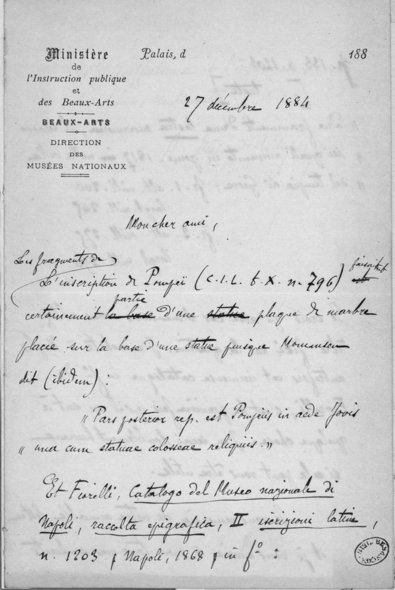 Ministère
de
l'Instruction publique
et
des Beaux-Arts
BEAUX-ARTS
DIRECTION
DES
MUSÉES NATIONAUX
Palais, d 188
27 décembre 1884
Mon cher ami,
Les fragments de
L'inscription de Pompeï (C.I.L. t. X. n. 796) faisait
certainement la base partie d'une statue plaque de marbre
placée sur la base d'une statue puisque Mommsen
dit (ibidem) :
"Pars posterior rep. est Pompeiis in aede Jovis
"una cum statuae colosseae reliquiis."
Et Fiorelli, Catalogo del Museo nazionale di
Napoli, raccolta epigrafica, II iscrizioni latine,
n. 1203 (Napoli, 1868, in f° :